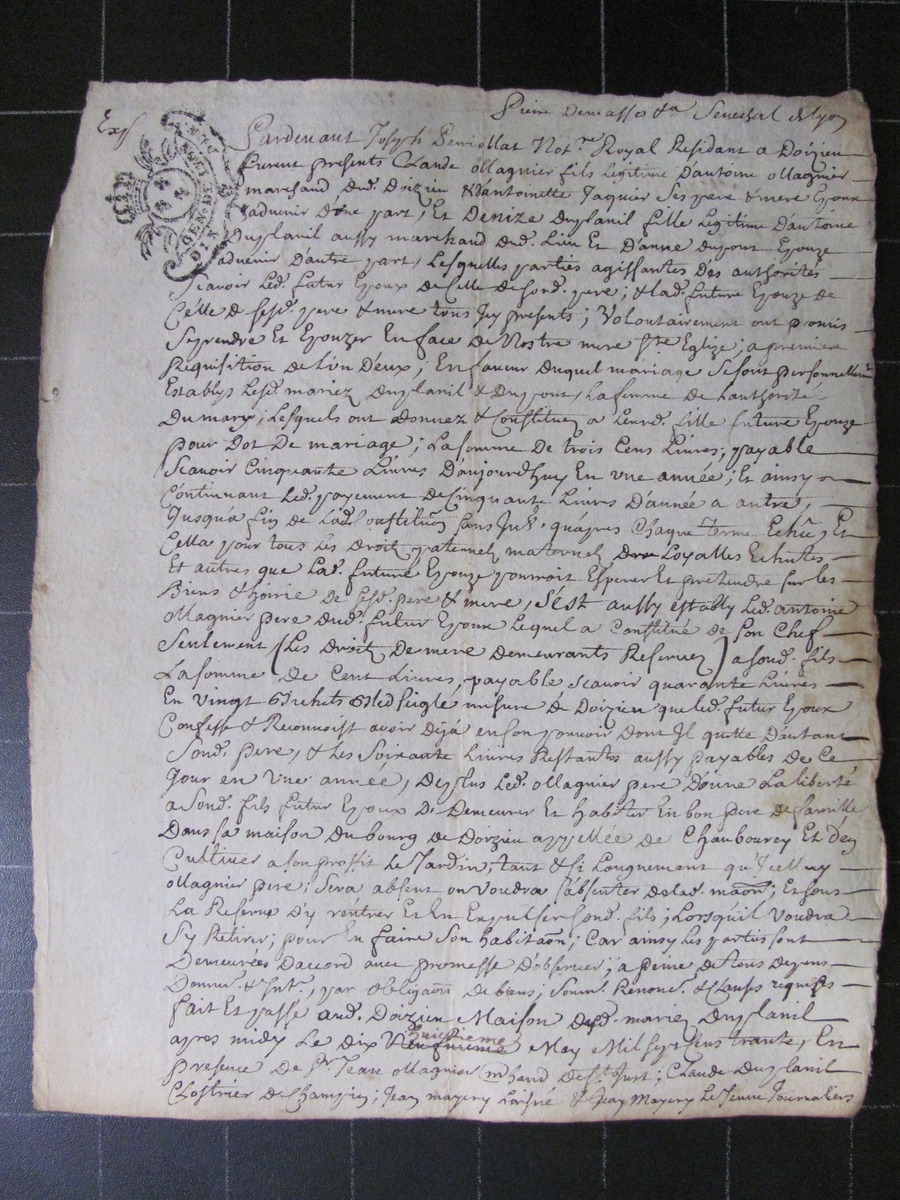 Exp
GEN. DE LION
DIX
Pardevant Joseph Notre Royal Residant a Doizieu
furent presents Claude Magnier fils legitime D'antoine Magnier
marchand dud. Doizieu & D'antoinette Jaquier Ses pere & mere Epoux
advenir D'une part, Et Denize Duplanil fille Legitime D'antoine
Duplanil aussy marchand dud. Lieu Et D'anne dupont Epouze
advenir D'autre part, Lesquelles parties agissantes Des authorités
Scavoir Led. futur Epoux de Celle de Sond. pere; & Lad. future Epouze de
Celle de sesd. pere & mere tous Icy presents; Volontairement ont promis
Se prendre Et Epouzer En face de Nostre mere Ste Eglize, a premiere
Requisition de L'un D'eux, En faveur duquel mariage Se sont personnellement
Establys Lesd. mariez Duplanil & Dupont, La femme de L'authorité
Du mary, Lesquels ont donnez & Constituez a Leurd. fille future Epouze
pour Dot De mariage, La somme De trois Cens Livres, payable
Scavoir Cinquante Livres D'aujourdhuy En une année; Et ainsy
Continuant Led. payement de Cinquante Livres D'année a autre,
Jusqu'a fin de Lad. Constituõn sans Int. qu'apres Chaque terme Echû, Et
Cella pour tous Les Droits paternels maternels Loyalles Echutes
Et autres que Lad. future Epouze pourroit Esperer Et pretendre sur Les
Biens & hoirie de sesd. pere & mere, S'est aussy estably Led. antoine
Magnier pere dud. futur Epoux Lequel a Constitué de Son Chef
Seulement (Les Droits De mere demeurants Reservez) a sond. fils
La somme De Cent Livres, payable scavoir quarante Livres
En Vingt Bichets Bled seigle mesure de Doizieu que Led. futur Epoux
Confesse & Reconnoist avoir dejà en son pouvoir dont Il quitte D'autant
Sond. pere, & Les Soixante Livres Restantes aussy payables de Ce
Jour en Une année, De plus Led. Magnier pere Donne La liberté
a Sond. fils futur Epoux De Demeurer Et habiter En bon pere de famille
Dans sa maison du bourg de Doizieu appellée de Chaubourey Et d'en
Cultiver a son proffit Le Jardin, tant & si Longuement qu'Icelluy
Magnier pere, Sera absent ou Voudra s'absenter de Lad. maõn; Et sous
La Reserve D'y rentrer Et En Expulser Sond. fils, Lorsqu'il Voudra
S'y Retirer, pour En faire Son habitaõn; Car ainsy Les parties sont
Demeurées D'accord avec promesse D'observer, a peine de tous Depens
Domm. & Int., par obligaõn de biens, Soum. Renonc. & Clauses requises
fait Et passé aud. Doizieu Maison desd. mariez Duplanil
apres midy Le dix huictieme May Mil sept Cens trante, En
presence de Sr. Jean Magnier mhand de St. Just; Claude Duplanil
Clostrier de Jean mayery Laisné & Jean Mayery Le Jeune Journaliers